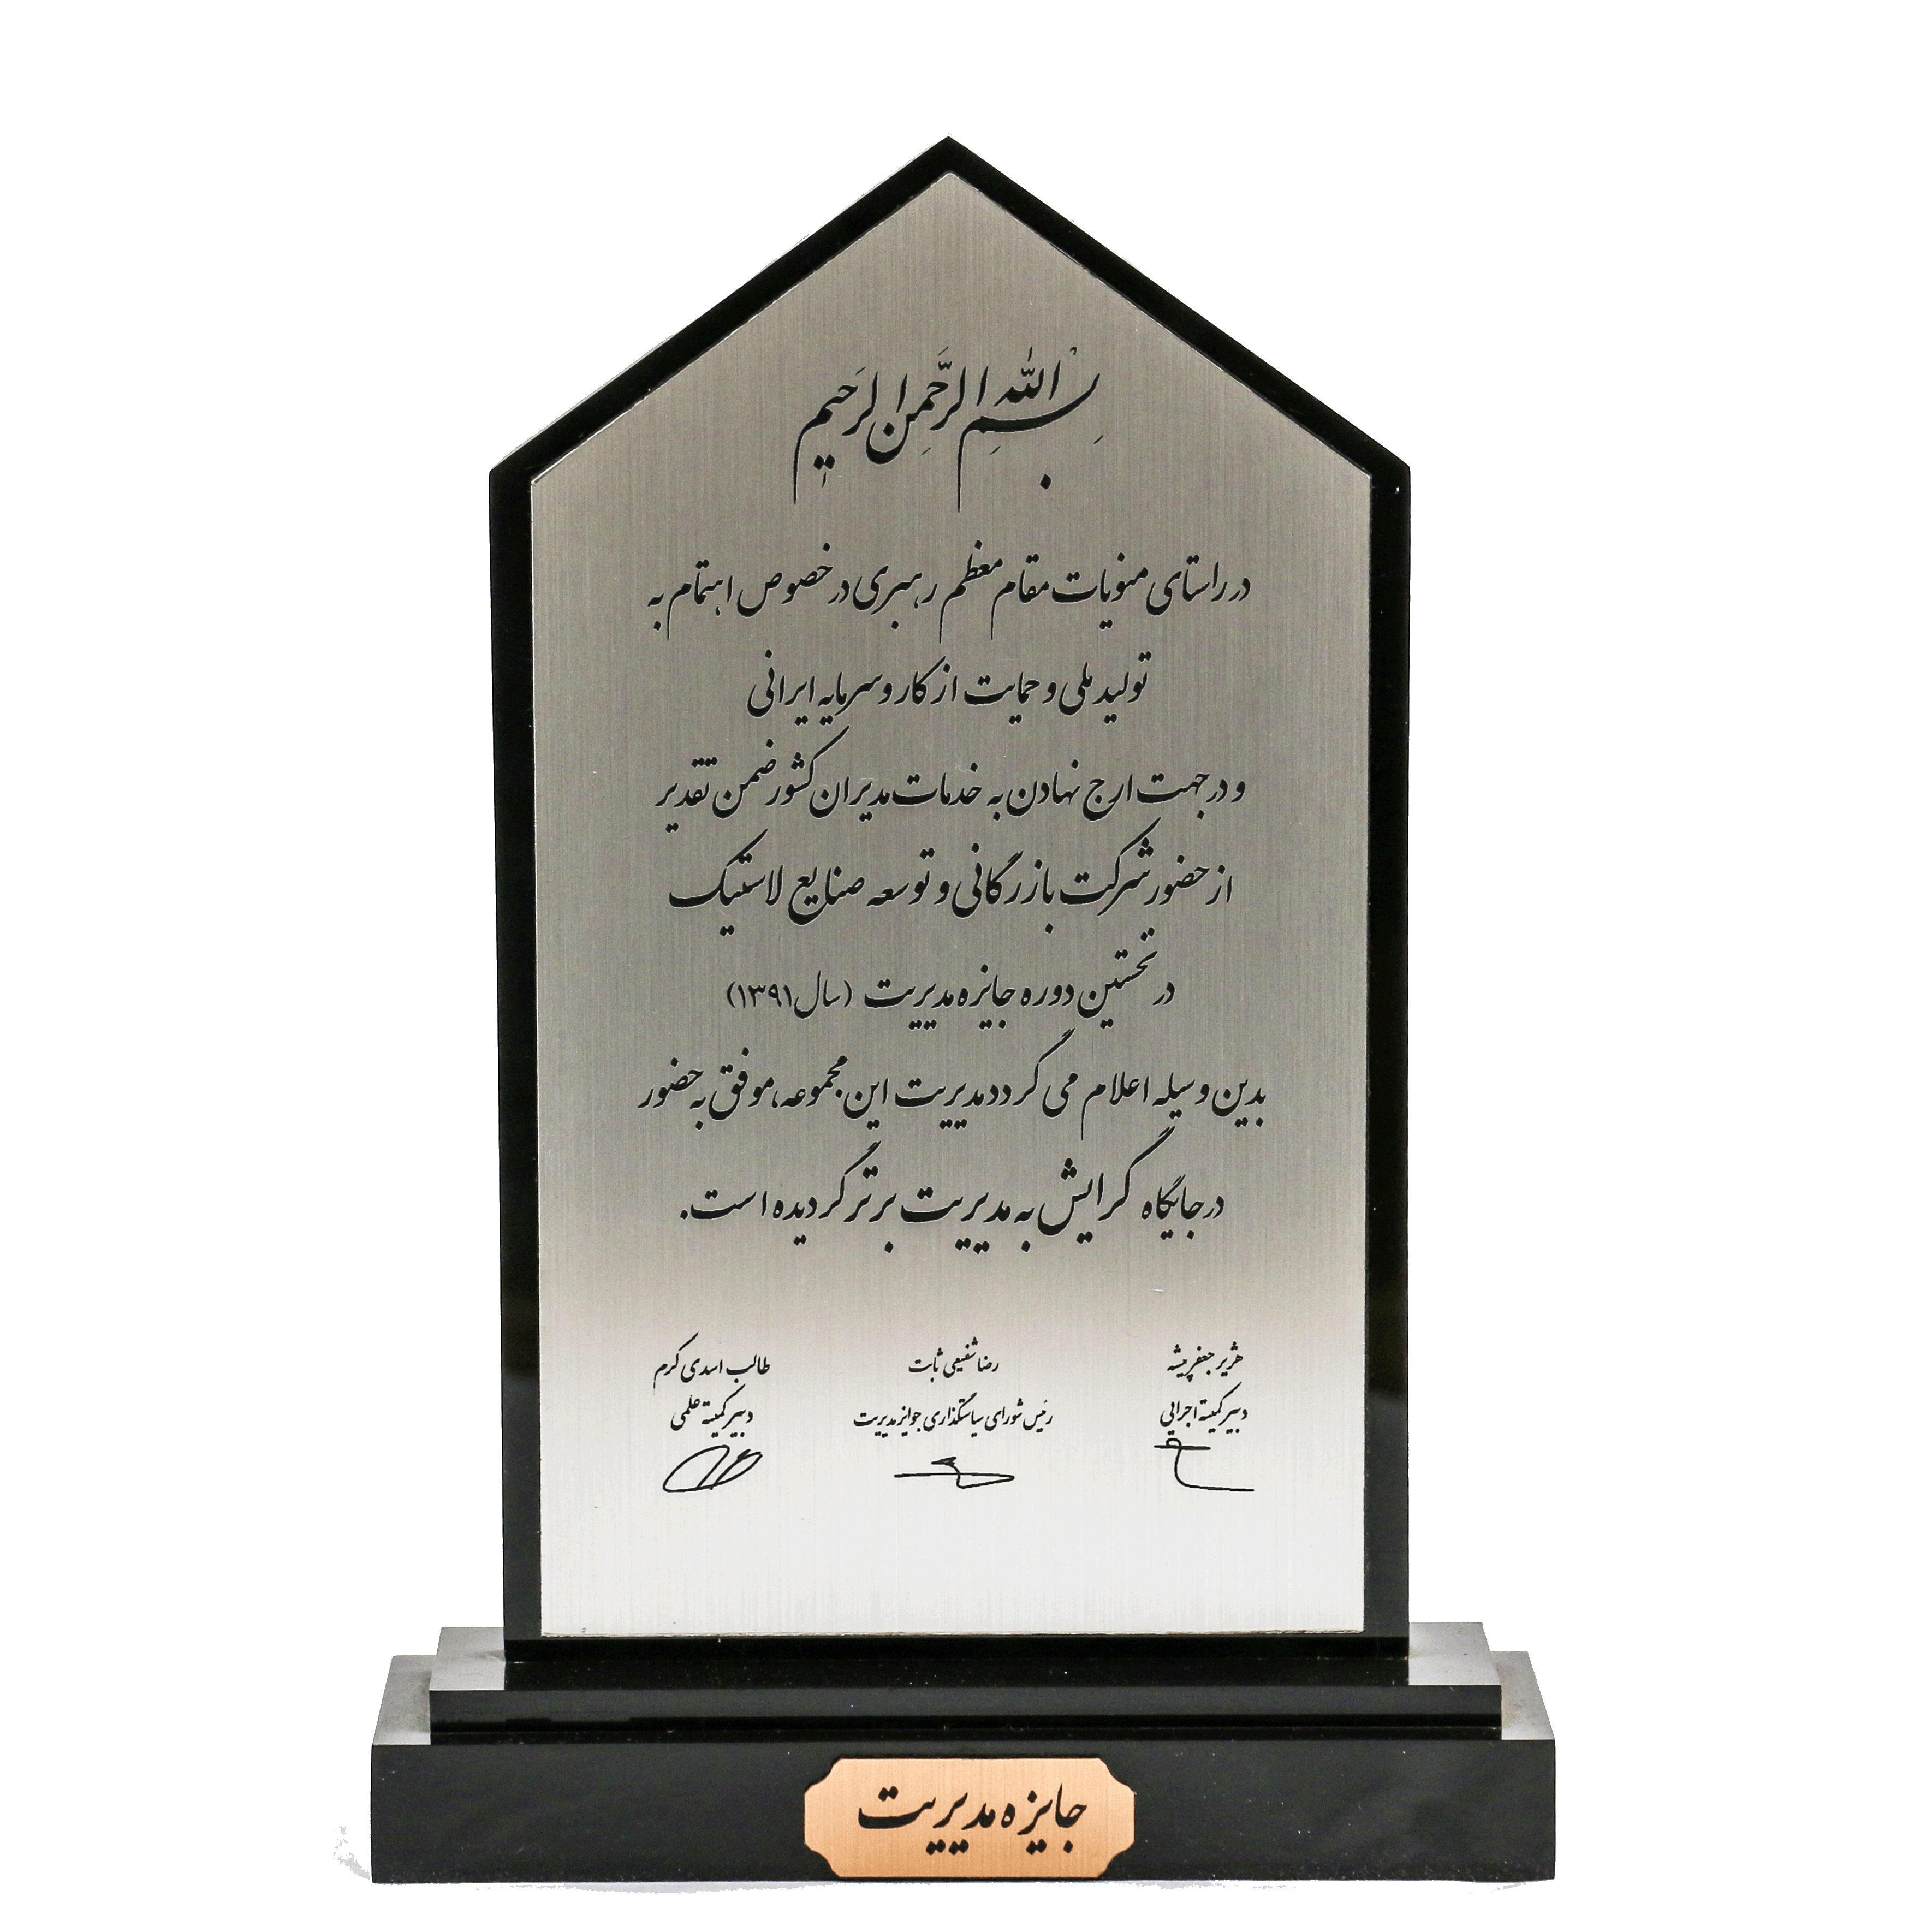 بِسْمِ اللهِ الرَّحْمنِ الرَحیمِ
در راستای منویات مقام معظم رهبری در خصوص اهتمام به
تولید ملی و حمایت از کار و سرمایه ایرانی
و در جهت ارج نهادن به خدمات مدیران کشور ضمن تقدیر
از حضور شرکت بازرگانی و توسعه صنایع لاستیک
در نخستین دوره جایزه مدیریت (سال ۱۳۹۱)
بدین وسیله اعلام می گردد مدیریت این مجموعه، موفق به حضور
در جایگاه گرایش به مدیریت برتر گردیده است.
هژیر جعفرپیشه رضا شفیعی ثابت طالب اسدی کرم
دبیر کمیته اجرایی رئیس شورای سیاستگذاری جوایز مدیریت دبیر کمیته علمی
جایزه مدیریت